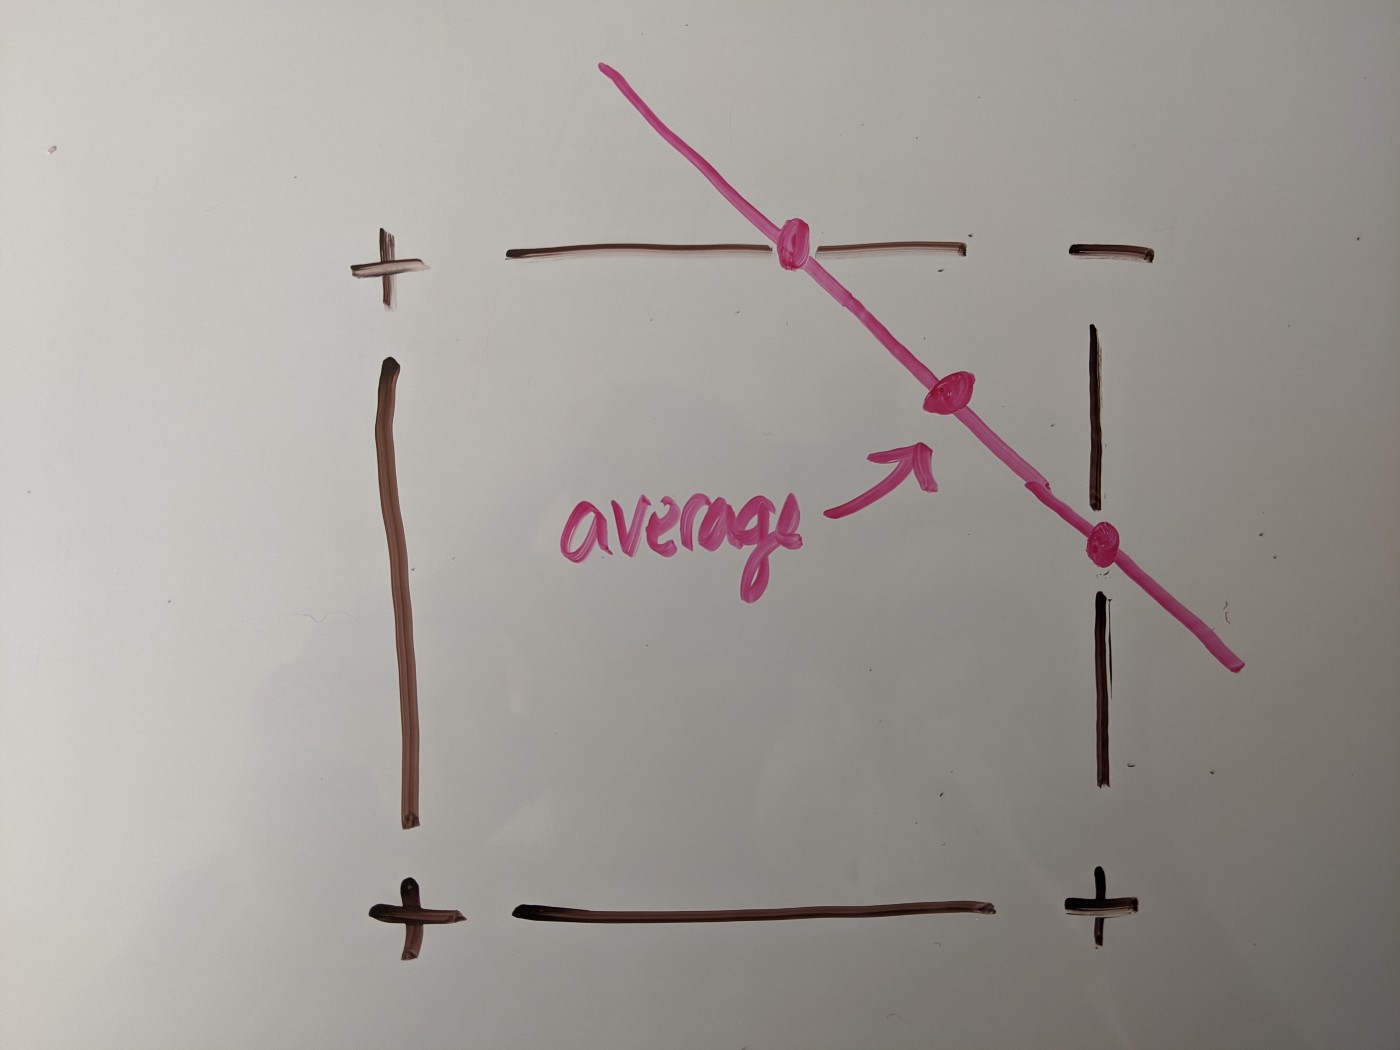 + -
average
+ +